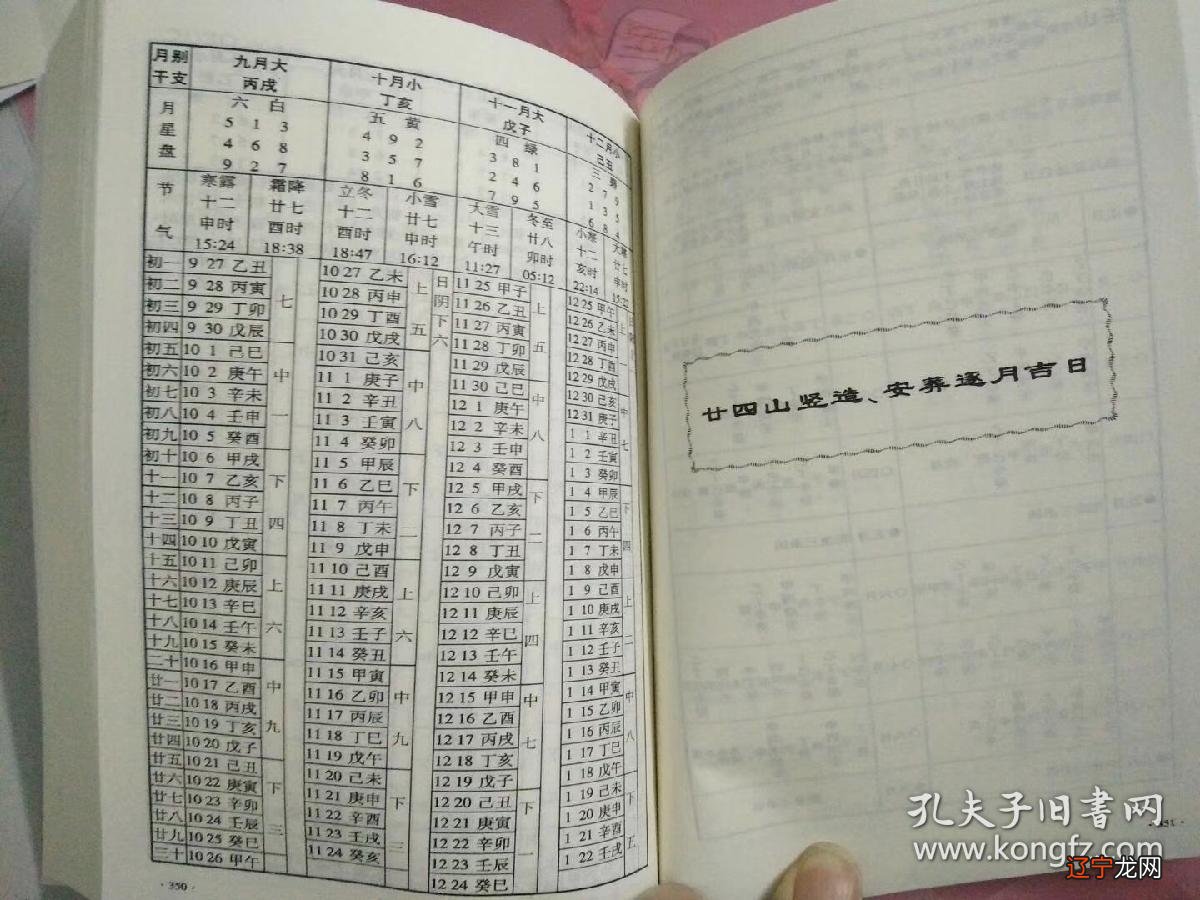 月别 九月大 十月小 十一月大 十二月小
干支 丙戌 丁亥 戊子 己丑
月星盘 六 白 五 黄 四 绿 三
5 1 3 4 9 2 3 8 1 2 7 9
4 6 8 3 5 7 2 4 6 1 3 5
9 2 7 8 1 6 7 9 5 6 8 4
节气 寒露 霜降 立冬 小雪 大雪 冬至 小寒 大寒
十二 廿七 十二 廿七 十三 廿八 十二 廿七
申时 酉时 酉时 申时 午时 卯时 亥时 申时
15:24 18:38 18:47 16:12 11:27 05:12 22:14
初一 9 27 乙丑 10 27 乙未 11 25 甲子 12 25 甲午
初二 9 28 丙寅 10 28 丙申 11 26 乙丑 12 26 乙未
初三 9 29 丁卯 七 10 29 丁酉 上 五 11 27 丙寅 上 五 12 27 丙申
初四 9 30 戊辰 10 30 戊戌 11 28 丁卯 12 28 丁酉
初五 10 1 己巳 10 31 己亥 11 29 戊辰 12 29 戊戌
初六 10 2 庚午 中 11 1 庚子 中 11 30 己巳 中 12 30 己亥 中
初七 10 3 辛未 11 2 辛丑 12 1 庚午 12 31 庚子
初八 10 4 壬申 一 11 3 壬寅 八 12 2 辛未 八 1 1 辛丑 七
初九 10 5 癸酉 11 4 癸卯 12 3 壬申 1 2 壬寅
初十 10 6 甲戌 11 5 甲辰 12 4 癸酉 1 3 癸卯
十一 10 7 乙亥 下 11 6 乙巳 下 12 5 甲戌 下 1 4 甲辰 下
十二 10 8 丙子 11 7 丙午 12 6 乙亥 1 5 乙巳
十三 10 9 丁丑 四 11 8 丁未 二 12 7 丙子 二 1 6 丙午 四
十四 10 10 戊寅 11 9 戊申 12 8 丁丑 1 7 丁未
十五 10 11 己卯 11 10 己酉 12 9 戊寅 1 8 戊申
十六 10 12 庚辰 上 11 11 庚戌 上 12 10 己卯 上 1 9 己酉 上
十七 10 13 辛巳 11 12 辛亥 12 11 庚辰 1 10 庚戌
十八 10 14 壬午 六 11 13 壬子 六 12 12 辛巳 四 1 11 辛亥 二
十九 10 15 癸未 11 14 癸丑 12 13 壬午 1 12 壬子
二十 10 16 甲申 11 15 甲寅 12 14 癸未 1 13 癸丑
廿一 10 17 乙酉 中 11 16 乙卯 中 12 15 甲申 中 1 14 甲寅 中
廿二 10 18 丙戌 11 17 丙辰 12 16 乙酉 1 15 乙卯
廿三 10 19 丁亥 九 11 18 丁巳 九 12 17 丙戌 七 1 16 丙辰 八
廿四 10 20 戊子 11 19 戊午 12 18 丁亥 1 17 丁巳
廿五 10 21 己丑 11 20 己未 12 19 戊子 1 18 戊午
廿六 10 22 庚寅 下 11 21 庚申 下 12 20 己丑 下 1 19 己未 下
廿七 10 23 辛卯 11 22 辛酉 12 21 庚寅 1 20 庚申
廿八 10 24 壬辰 三 11 23 壬戌 三 12 22 辛卯 一 1 21 辛酉 五
廿九 10 25 癸巳 11 24 癸亥 12 23 壬辰 1 22 壬戌
三十 10 26 甲午 12 24 癸巳
日阴下六
·350·
廿四山竖造、安葬逐月吉日
·351·
孔夫子旧书网
www.kongfz.com
辽宁龙网